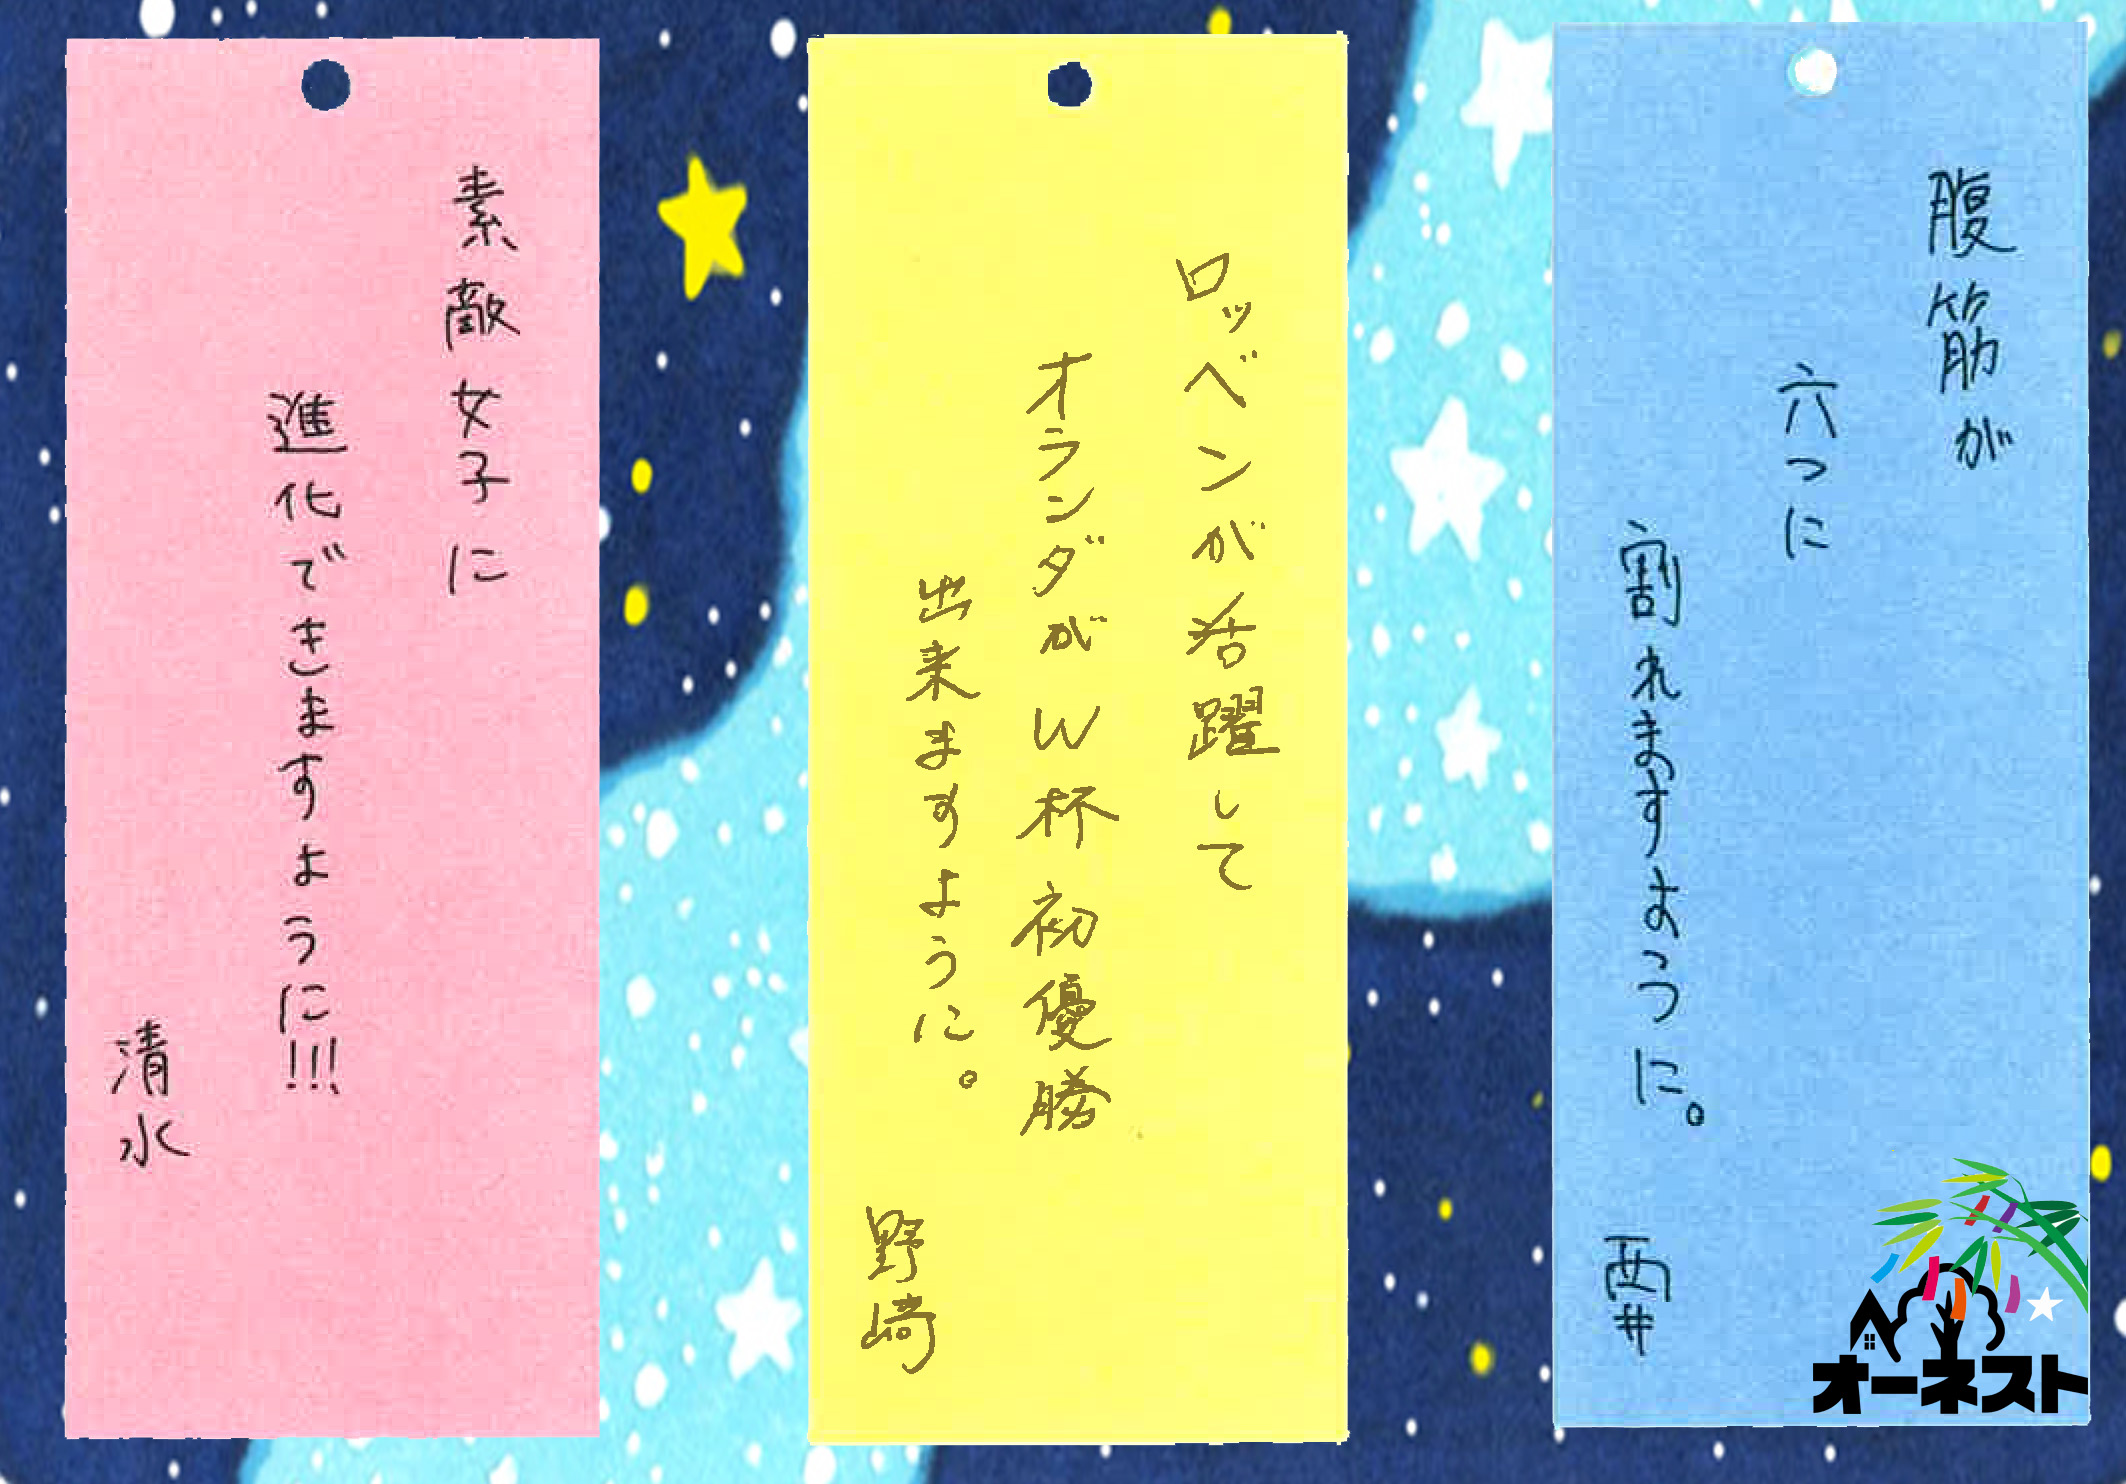 素敵女子に
進化できますように!!!
清水
ロッベンが活躍して
オランダがW杯初優勝
出来ますように。
野崎
腹筋が
六つに
割れますように。
西井
オーネスト